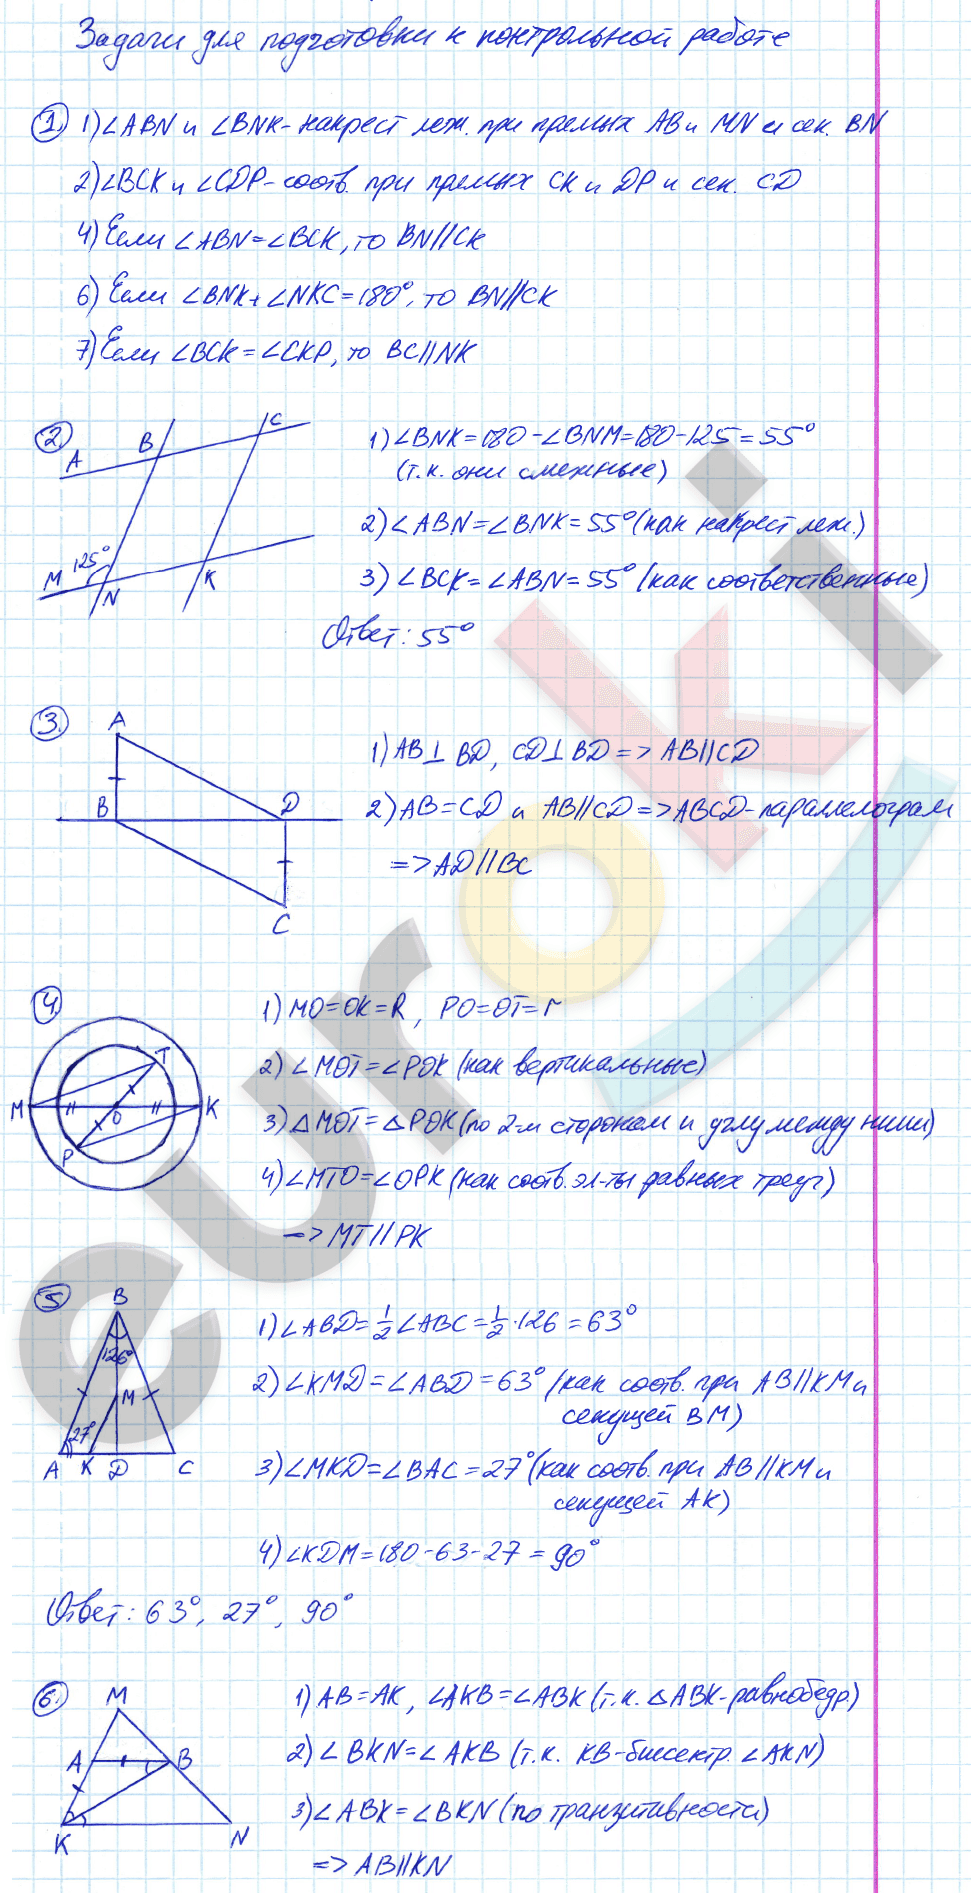 Задачи для подготовки к контрольной работе
1. 1) ∠ABN и ∠BNK - накрест леж. при прямых AB и MN и сек. BN
2) ∠BCK и ∠CDP - соотв. при прямых CK и DP и сек. CD
4) Если ∠ABN = ∠BCK, то BN // CK
6) Если ∠BNK + ∠NKC = 180°, то BN // CK
7) Если ∠BCK = ∠CKP, то BC // NK
2. A B C M N K 125°
1) ∠BNK = 180 - ∠BNM = 180 - 125 = 55°
(т.к. они смежные)
2) ∠ABN = ∠BNK = 55° (как накрест леж.)
3) ∠BCK = ∠ABN = 55° (как соответственные)
Ответ: 55°
3. A B D C
1) AB ⊥ BD, CD ⊥ BD => AB // CD
2) AB = CD и AB // CD => ABCD - параллелограм
=> AD // BC
4. M T O K P
1) MO = OK = R, PO = OT = r
2) ∠MOT = ∠POK (как вертикальные)
3) △MOT = △POK (по 2-м сторонам и углу между ними)
4) ∠MTO = ∠OPK (как соотв. эл-ты равных треуг)
=> MT // PK
5. B 126° M 27° A K D C
1) ∠ABD = 1/2 ∠ABC = 1/2 · 126 = 63°
2) ∠KMD = ∠ABD = 63° (как соотв. при AB // KM и
секущей BM)
3) ∠MKD = ∠BAC = 27° (как соотв. при AB // KM и
секущей AK)
4) ∠KDM = 180 - 63 - 27 = 90°
Ответ: 63°, 27°, 90°
6. M A B K N
1) AB = AK, ∠AKB = ∠ABK (т.к. △ABK - равнобедр.)
2) ∠BKN = ∠AKB (т.к. KB - биссектр. ∠AKN)
3) ∠ABK = ∠BKN (по транзитивности)
=> AB // KN
euroki